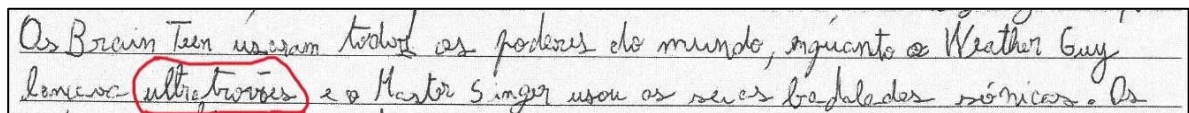 Os Brain Teen usaram todos os poderes do mundo, enquanto o Weather Guy
lançava ultratrovões e o Master Singer usou as suas badaladas sónicas. Os